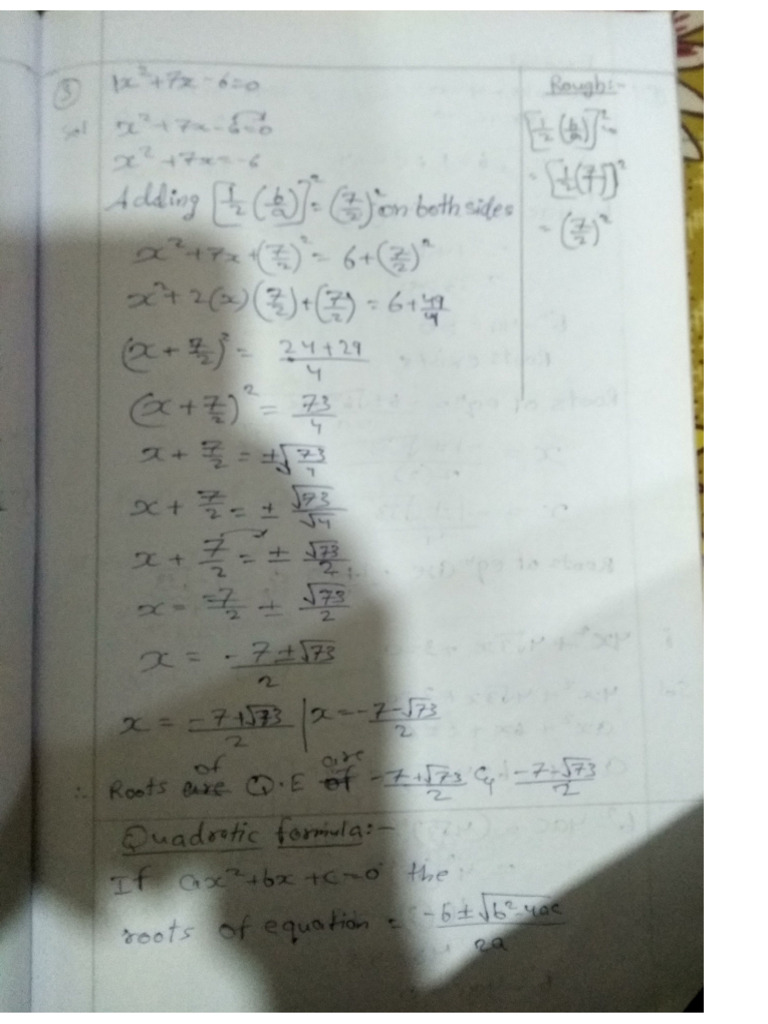 ③ 1x²+7x-6=0
Sol x²+7x-6=0
x²+7x=-6
Adding [1/2 (b/a)]²=(7/2)² on both sides
x²+7x+(7/2)²= 6+(7/2)²
x²+2(x)(7/2)+(7/2)=6+49/4
(x+7/2)²= 24+29/4
(x+7/2)²= 73/4
x+7/2=±√73/4
x+7/2=±√73/√4
x+7/2=±√73/2
x=-7/2±√73/2
x=-7±√73/2
x=-7+√73/2 | x=-7-√73/2
∴ Roots of Q.E are -7+√73/2 & -7-√73/2
Quadrotic formula:-
If ax²+bx+c=0 the
roots of equation = -b±√b²-4ac/2a
Rough:-
[1/2 (b/a)]²=
=[1/2(7/1)]²
=(7/2)²